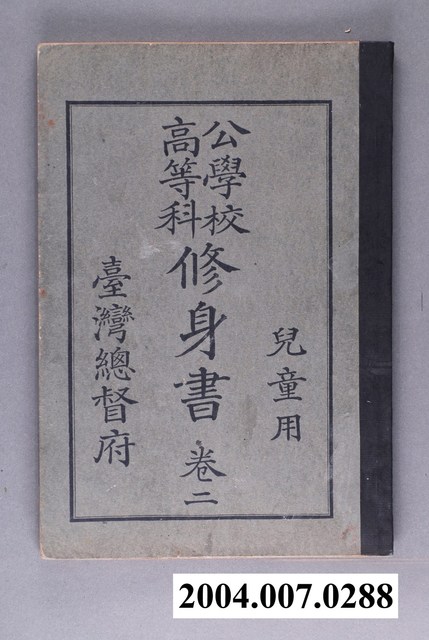 兒童用
公學校
高等科
修身書 卷二
臺灣總督府
2004.007.0288